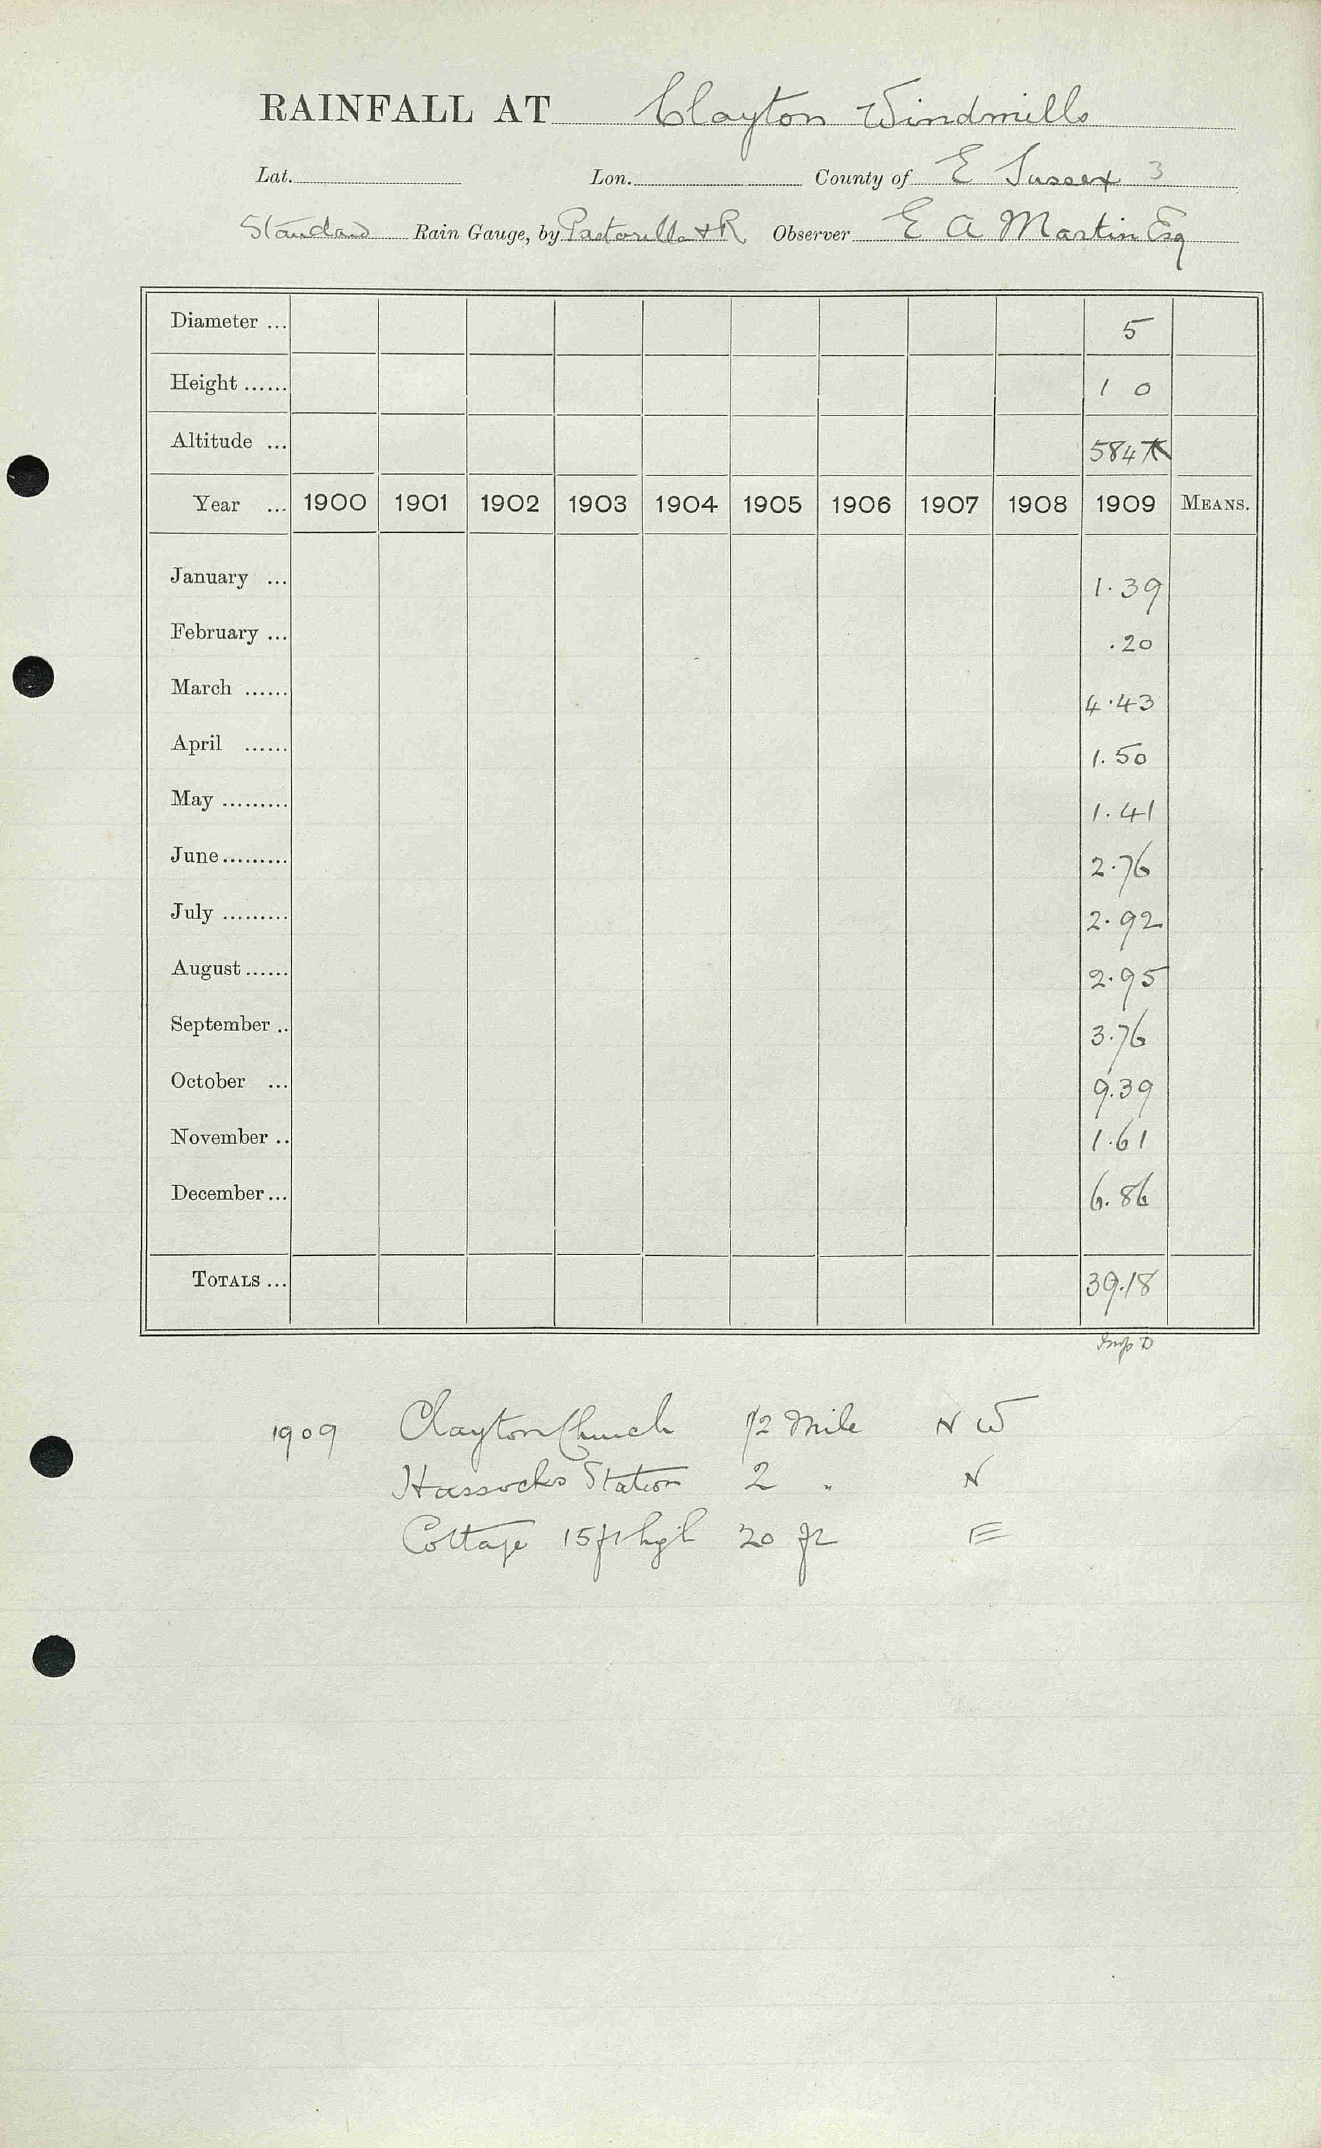 RAINFALL AT Clayton Windmills
Lat. Lon. County of E Sussex 3
Standard Rain Gauge, by Pastorelli & R Observer E A Martin Esq
Diameter ... 5
Height ...... 1 0
Altitude ... 584
Year ... 1900 1901 1902 1903 1904 1905 1906 1907 1908 1909 MEANS.
January ... 1.39
February ... .20
March ...... 4.43
April ...... 1.50
May ......... 1.41
June......... 2.76
July ......... 2.92
August...... 2.95
September .. 3.76
October ... 9.39
November .. 1.61
December... 6.86
TOTALS ... 39.18
1909 Clayton Church 1/2 Mile N W
Hassocks Station 2 " N
Cottage 15ft high 20 ft E